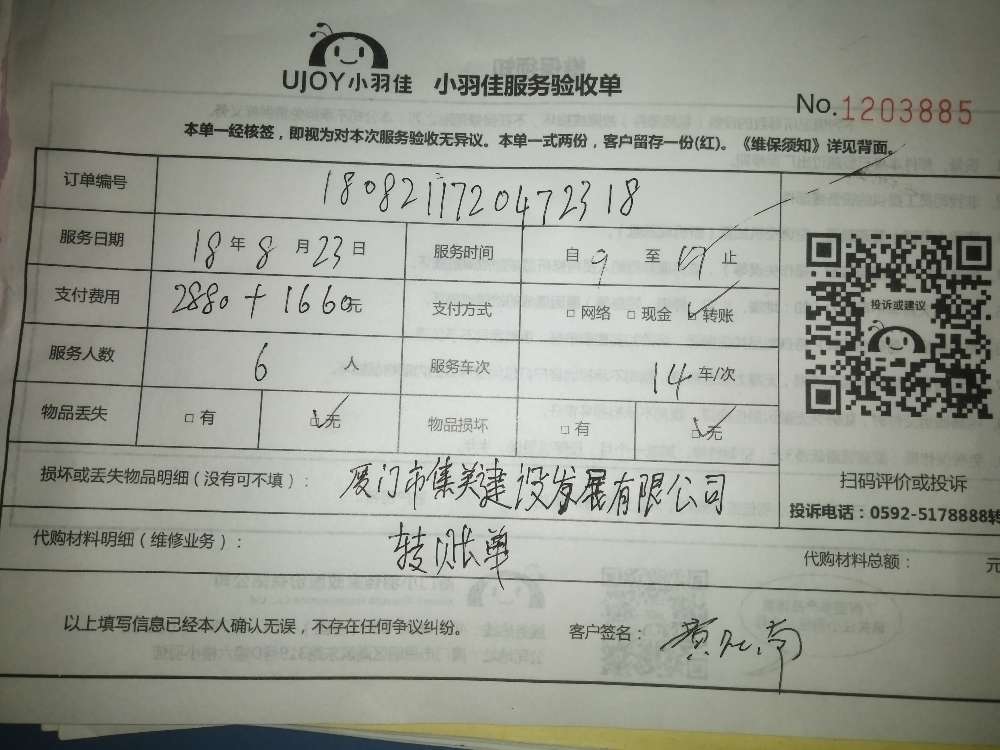 UJOY小羽佳 小羽佳服务验收单
No.1203885
本单一经核签，即视为对本次服务验收无异议。本单一式两份，客户留存一份(红)。《维保须知》详见背面。
订单编号 1808211720472318
服务日期 18年8月23日 服务时间 自9至17止
支付费用 2880+1660元 支付方式 □网络 □现金 ☑转账
投诉或建议
服务人数 6人 服务车次 14车/次
物品丢失 □有 ☑无 物品损坏 □有 ☑无
损坏或丢失物品明细（没有可不填）： 厦门市集美建设发展有限公司
扫码评价或投诉
投诉电话：0592-5178888转
代购材料明细（维修业务）： 转账单 代购材料总额： 元
以上填写信息已经本人确认无误，不存在任何争议纠纷。 客户签名：